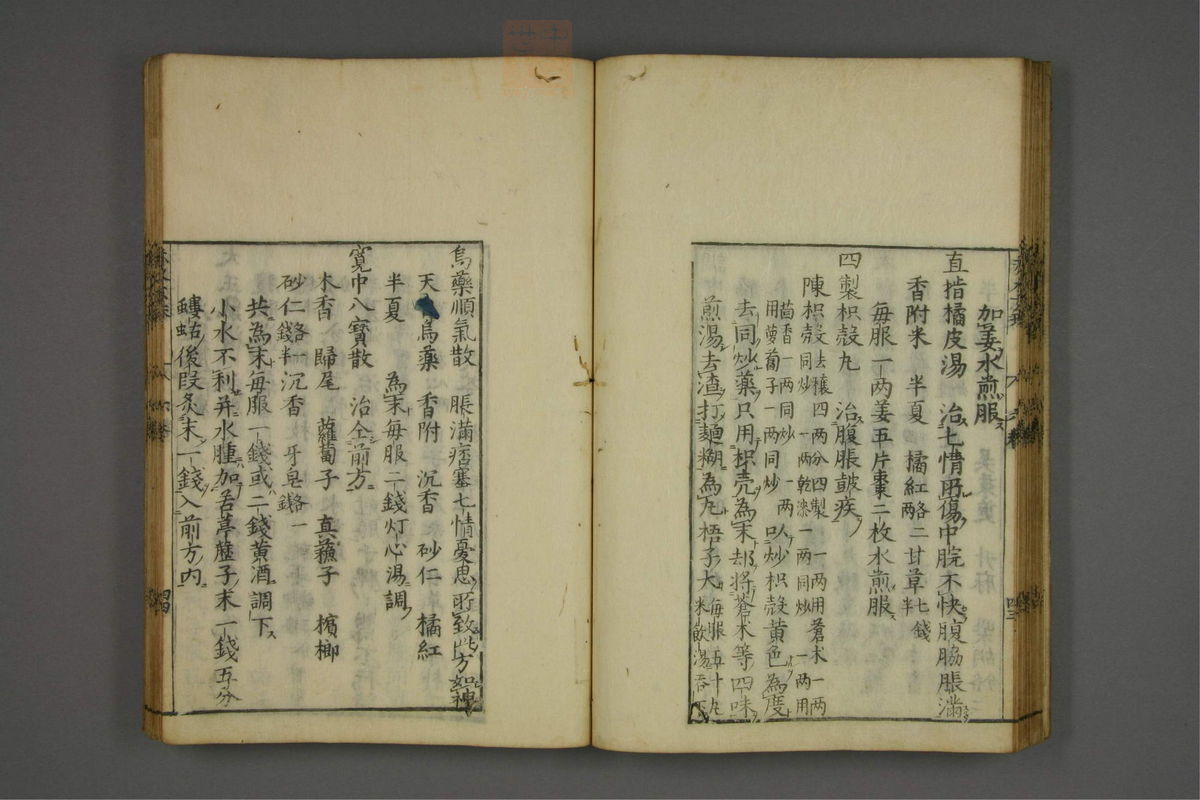 加姜水煎服
直指橘皮湯 治七情所傷中脘不快腹脇脹滿
香附米 半夏 橘紅各二兩 甘草七錢半
每服一兩姜五片棗二枚水煎服
四製枳殼丸 治腹脹皷疾
陳枳殼去穰四兩分四製 一兩用蒼朮一兩
枳殼同炒 一兩
茴香一兩同炒 一兩
用蘿蔔子一兩同炒 以炒枳殼黃色為度
去同炒藥只用枳壳為末却將蒼朮等四味
煎湯去渣打麵糊為丸梧子大每服五十丸米飲湯吞下
烏藥順氣散 脹滿痞塞七情憂思所致此方如神
天烏藥 香附 沉香 砂仁 橘紅
半夏 為末每服二錢灯心湯調
寬中八寶散 治仝前方
木香 歸尾 蘿蔔子 真蘇子 檳榔
砂仁各一錢半 沉香 牙皂各一錢
共為末每服一錢或二錢黃酒調下
小水不利并水腫加苦葶藶子末一錢五分
螻蛄後段炙末一錢入前方內